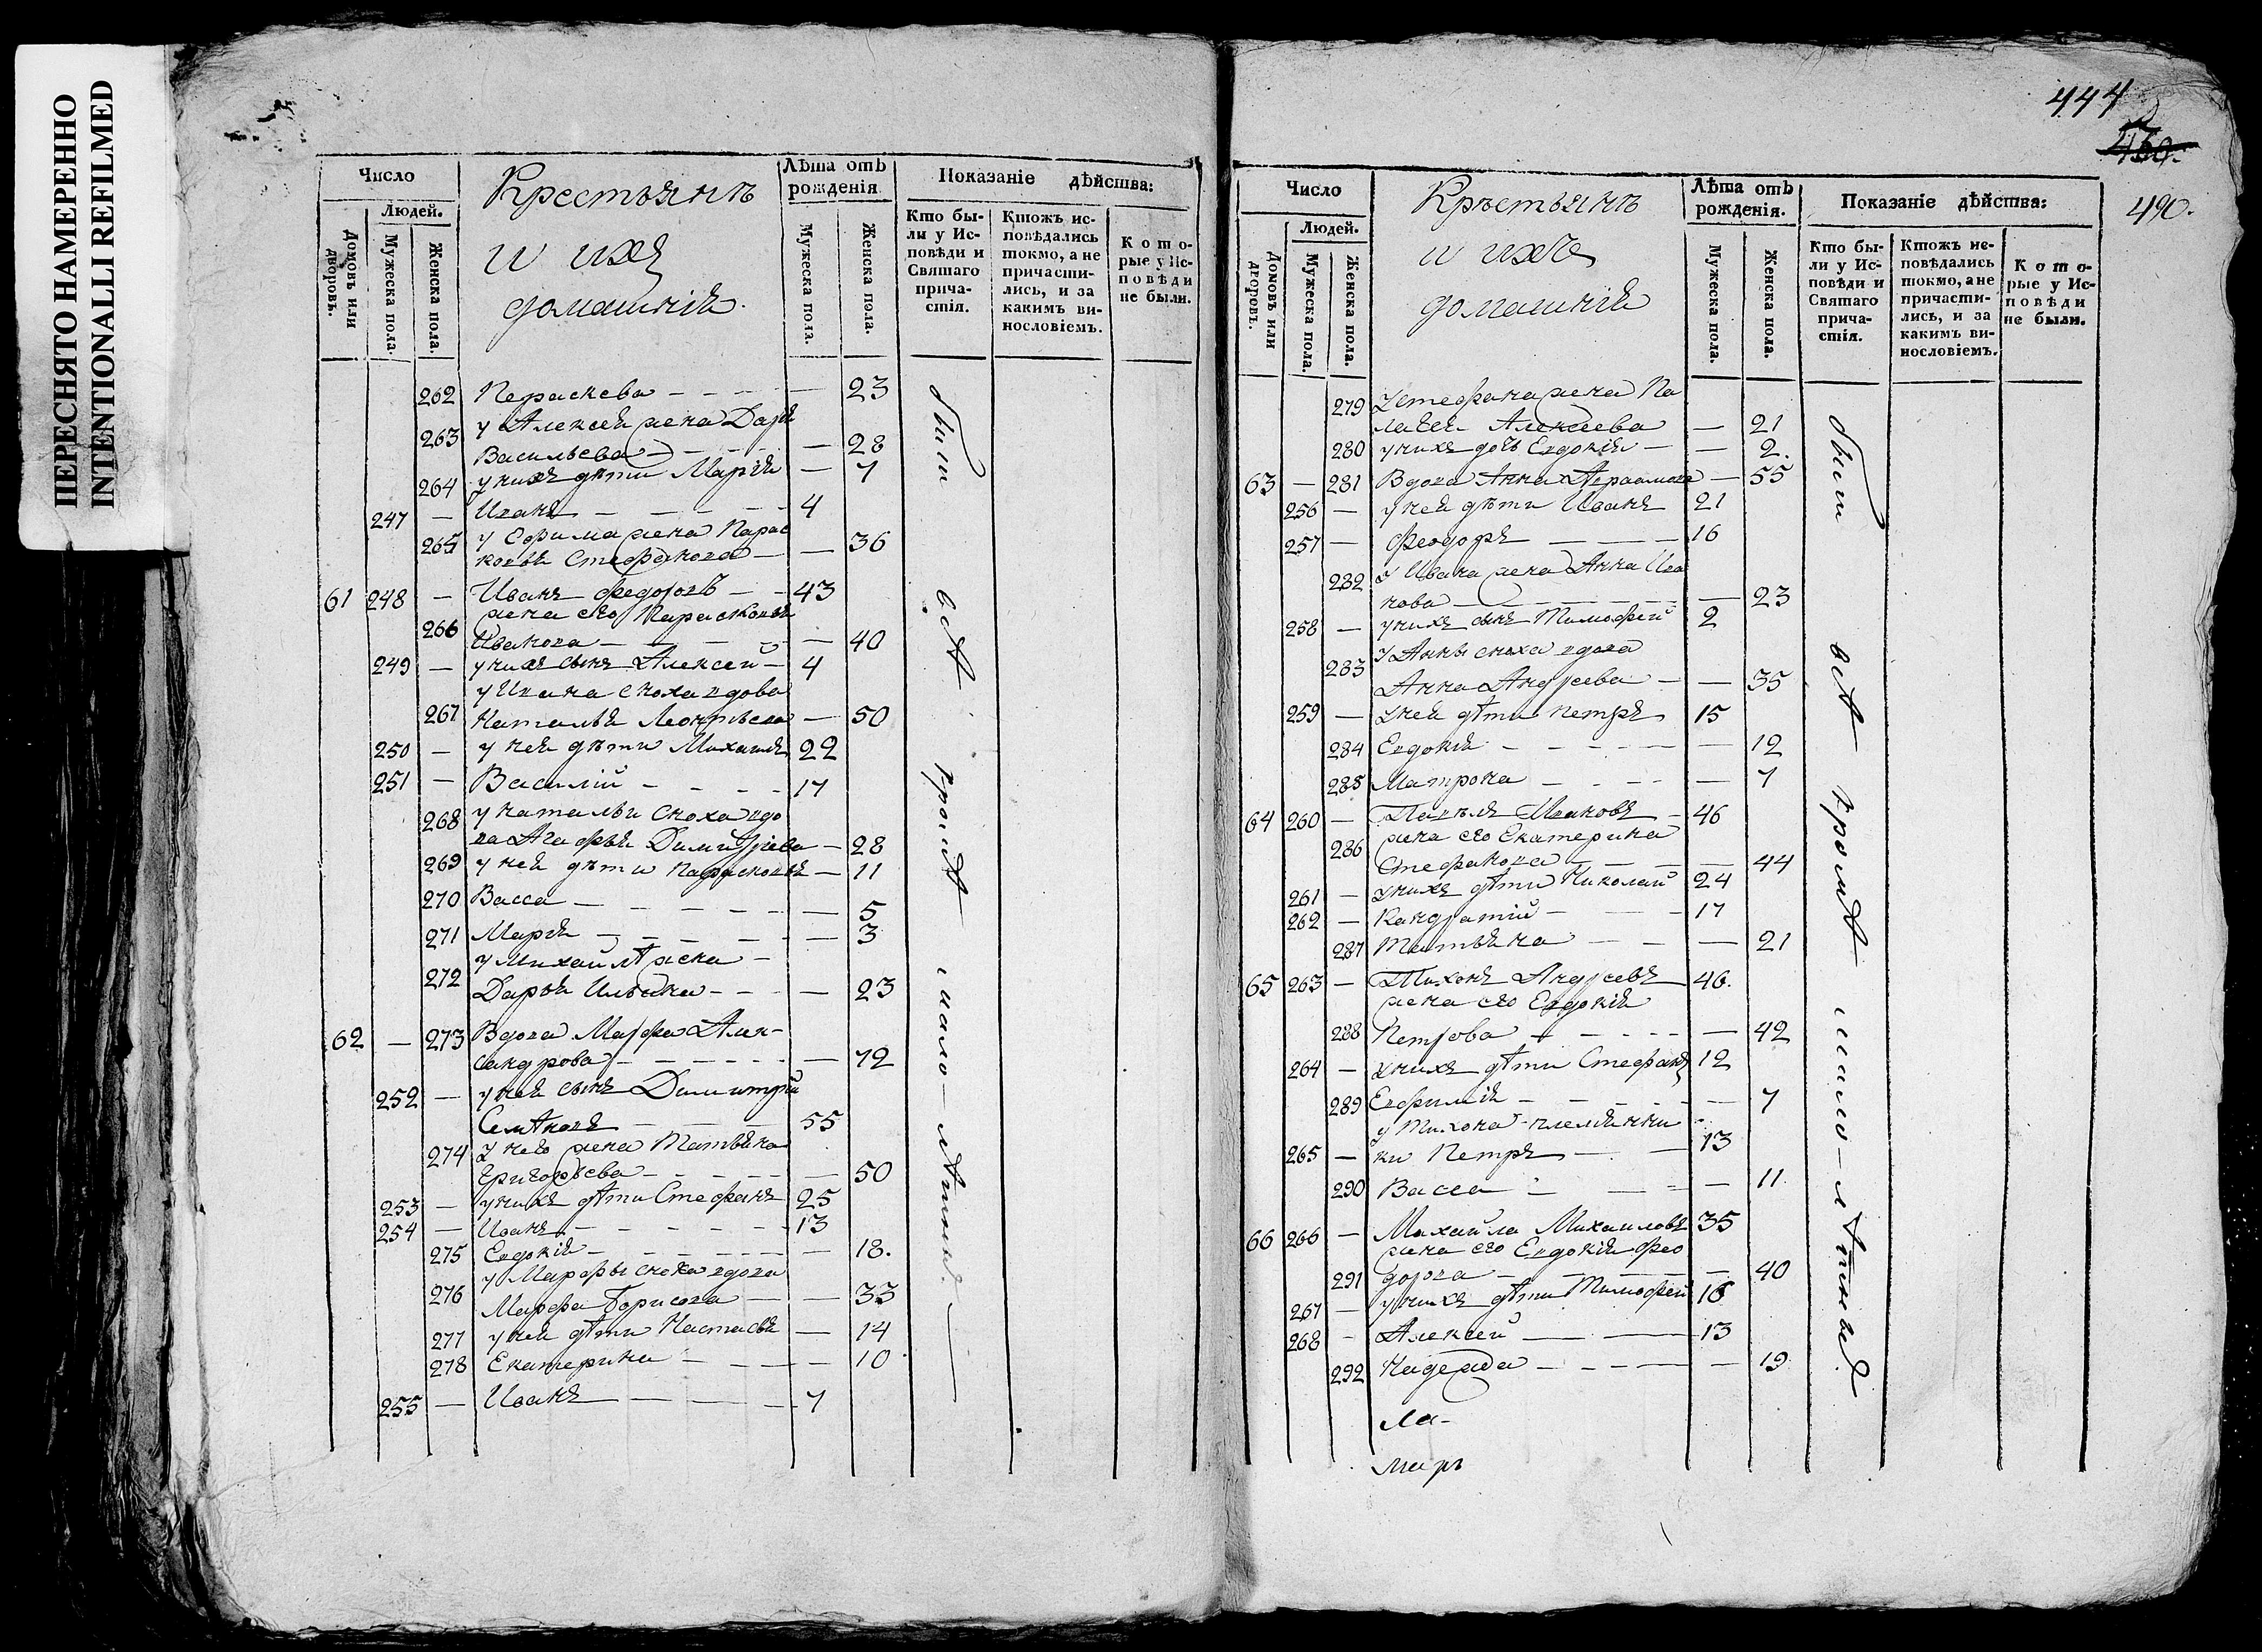 ПЕРЕСНЯТО НАМЕРЕННО
INTENTIONALLI REFILMED
Число
Людей.
Домовъ или дворовъ.
Мужеска пола.
Женска пола.
Крестьянъ
и ихъ
домашнія
Лѣта отъ рожденія
Мужеска пола.
Женска пола.
Показаніе дѣйства:
Кто были у Исповѣди и Святаго причастія.
Ктожъ исповѣдались токмо, а не причастились, и за какимъ винословіемъ.
Которые у Исповѣди не были.
262 Пераскева — 23
263 у Алексея жена Дарья
Васильева — 28
264 у нихъ дѣти Марія — 7
247 — Иванъ — 4
265 у Ефима жена Парас
ковья Стефанова — 36
61 248 — Иванъ Федоровъ — 43
266 жена его Парасковья
Иванова — 40
249 — у нихъ сынъ Алексей — 4
у Ивана сноха вдова
267 Наталья Леонтьева — 50
250 — у ней дѣти Михаилъ 22
251 — Василій — 17
268 у Натальи сноха вдо
ва Агафья Димитріева — 28
269 у ней дѣти Парасковья — 11
270 Васса — 5
271 Марія — 3
272 у Михайлѣ жена —
Дарья Ильина — 23
62 — 273 Вдова Марфа Алек-
сандрова — 72
252 — у ней сынъ Димитрій
Семѣновъ 55
274 У него жена Татьяна
Григорьева — 50
253 — у нихъ дѣти Стефанъ 25
254 — Иванъ — 13
275 Евдокія — 18.
276 у Марфы сноха вдова
Марфа Борисова — 33
277 у ней дѣти Настасья — 14
278 Екатерина — 10
255 — Иванъ — 7
были всѣ кромѣ мало-лѣтныхъ.
444
490.
Число
Людей.
Домовъ или дворовъ.
Мужеска пола.
Женска пола.
Крѣстьянъ
и ихъ
домашнія
Лѣта отъ рожденія.
Мужеска пола.
Женска пола.
Показаніе дѣйства:
Кто были у Исповѣди и Святаго причастія.
Ктожъ исповѣдались токмо, а не причастились, и за какимъ винословіемъ.
Которые у Исповѣди не были.
279 У Стефана жена Пе
лагея Алексеева — 21
280 у нихъ дочь Евдокія — 2.
63 — 281 Вдова Анна Авраамова — 55
256 — у ней дѣти Иванъ 21
257 — Феодоръ — 16
282 У Ивана жена Анна Ива
нова — 23
258 — у нихъ сынъ Тимофей 2
283 У Анны сноха вдова
Анна Андреева — 35
259 — у ней дѣти Петръ 15
284 Евдокія — 12
285 Матрона — 7
64 260 — Павелъ Ивановъ — 46
286 жена его Екатерина
Стефанова — 44
261 — у нихъ дѣти Николай 24
262 — Кандратій — 17
287 Татьяна — 21
65 263 — Тихонъ Андреевъ 46.
жена его Евдокія
288 Петрова — 42
264 — у нихъ дѣти Стефанъ 12
289 Евфимія — 7
у Тихона племянни
265 — ки Петръ — 13
290 Васса — 11
66 266 — Михайла Михаиловъ 35
жена его Евдокія Фео
291 дорова — 40
267 — у нихъ дѣти Тимофей 16
268 — Алексей — 13
292 Надежда — 19
Ла-
марь
были всѣ кромѣ мало-лѣтныхъ